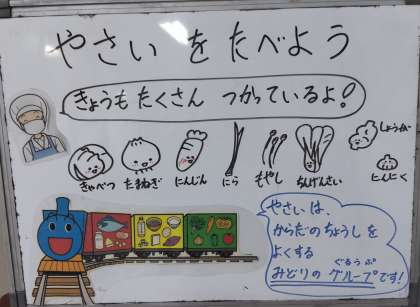 やさい を たべよう
きょうも たくさん つかっているよ!
きゃべつ たまねぎ にんじん にら もやし ちんげんさい しょうが にんにく
やさいは、
からだのちょうしを
よくする
ぐるうぷ
みどりの グループです!